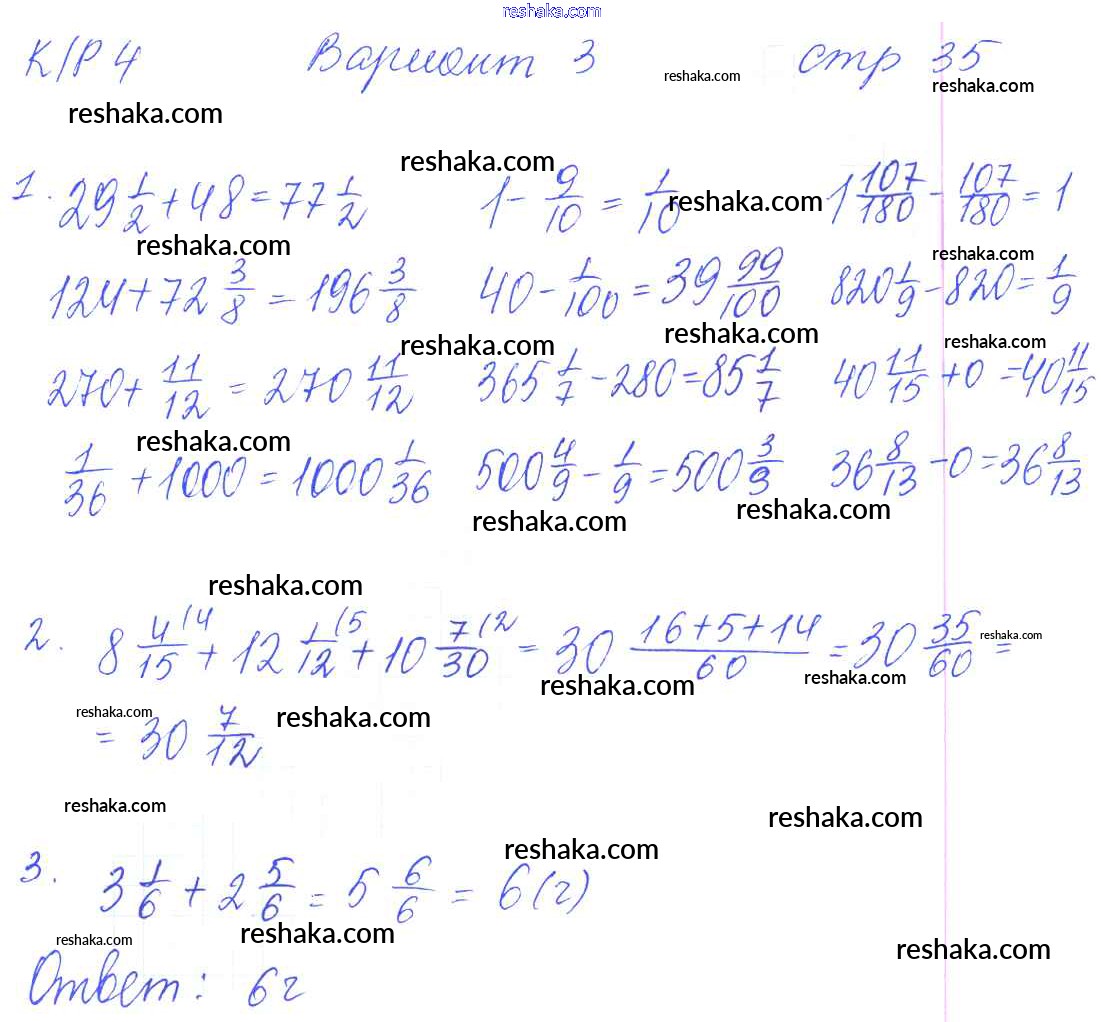 reshaka.com
К/Р 4 Вариант 3 стр 35
reshaka.com reshaka.com reshaka.com
reshaka.com
1. 29 1/2 + 48 = 77 1/2 1 - 9/10 = 1/10 1 107/180 - 107/180 = 1
reshaka.com reshaka.com reshaka.com
124 + 72 3/8 = 196 3/8 40 - 1/100 = 39 99/100 820 1/9 - 820 = 1/9
reshaka.com reshaka.com reshaka.com
270 + 11/12 = 270 11/12 365 1/7 - 280 = 85 1/7 40 11/15 + 0 = 40 11/15
reshaka.com
1/36 + 1000 = 1000 1/36 500 4/9 - 1/9 = 500 3/9 36 8/13 - 0 = 36 8/13
reshaka.com reshaka.com
reshaka.com
2. 8 4/15 (4 + 12 1/12 (5 + 10 7/30 (2 = 30 16+5+14/60 = 30 35/60 =
reshaka.com reshaka.com reshaka.com
reshaka.com reshaka.com
= 30 7/12
reshaka.com reshaka.com
reshaka.com
3. 3 1/6 + 2 5/6 = 5 6/6 = 6 (г)
reshaka.com reshaka.com reshaka.com
Ответ: 6 г